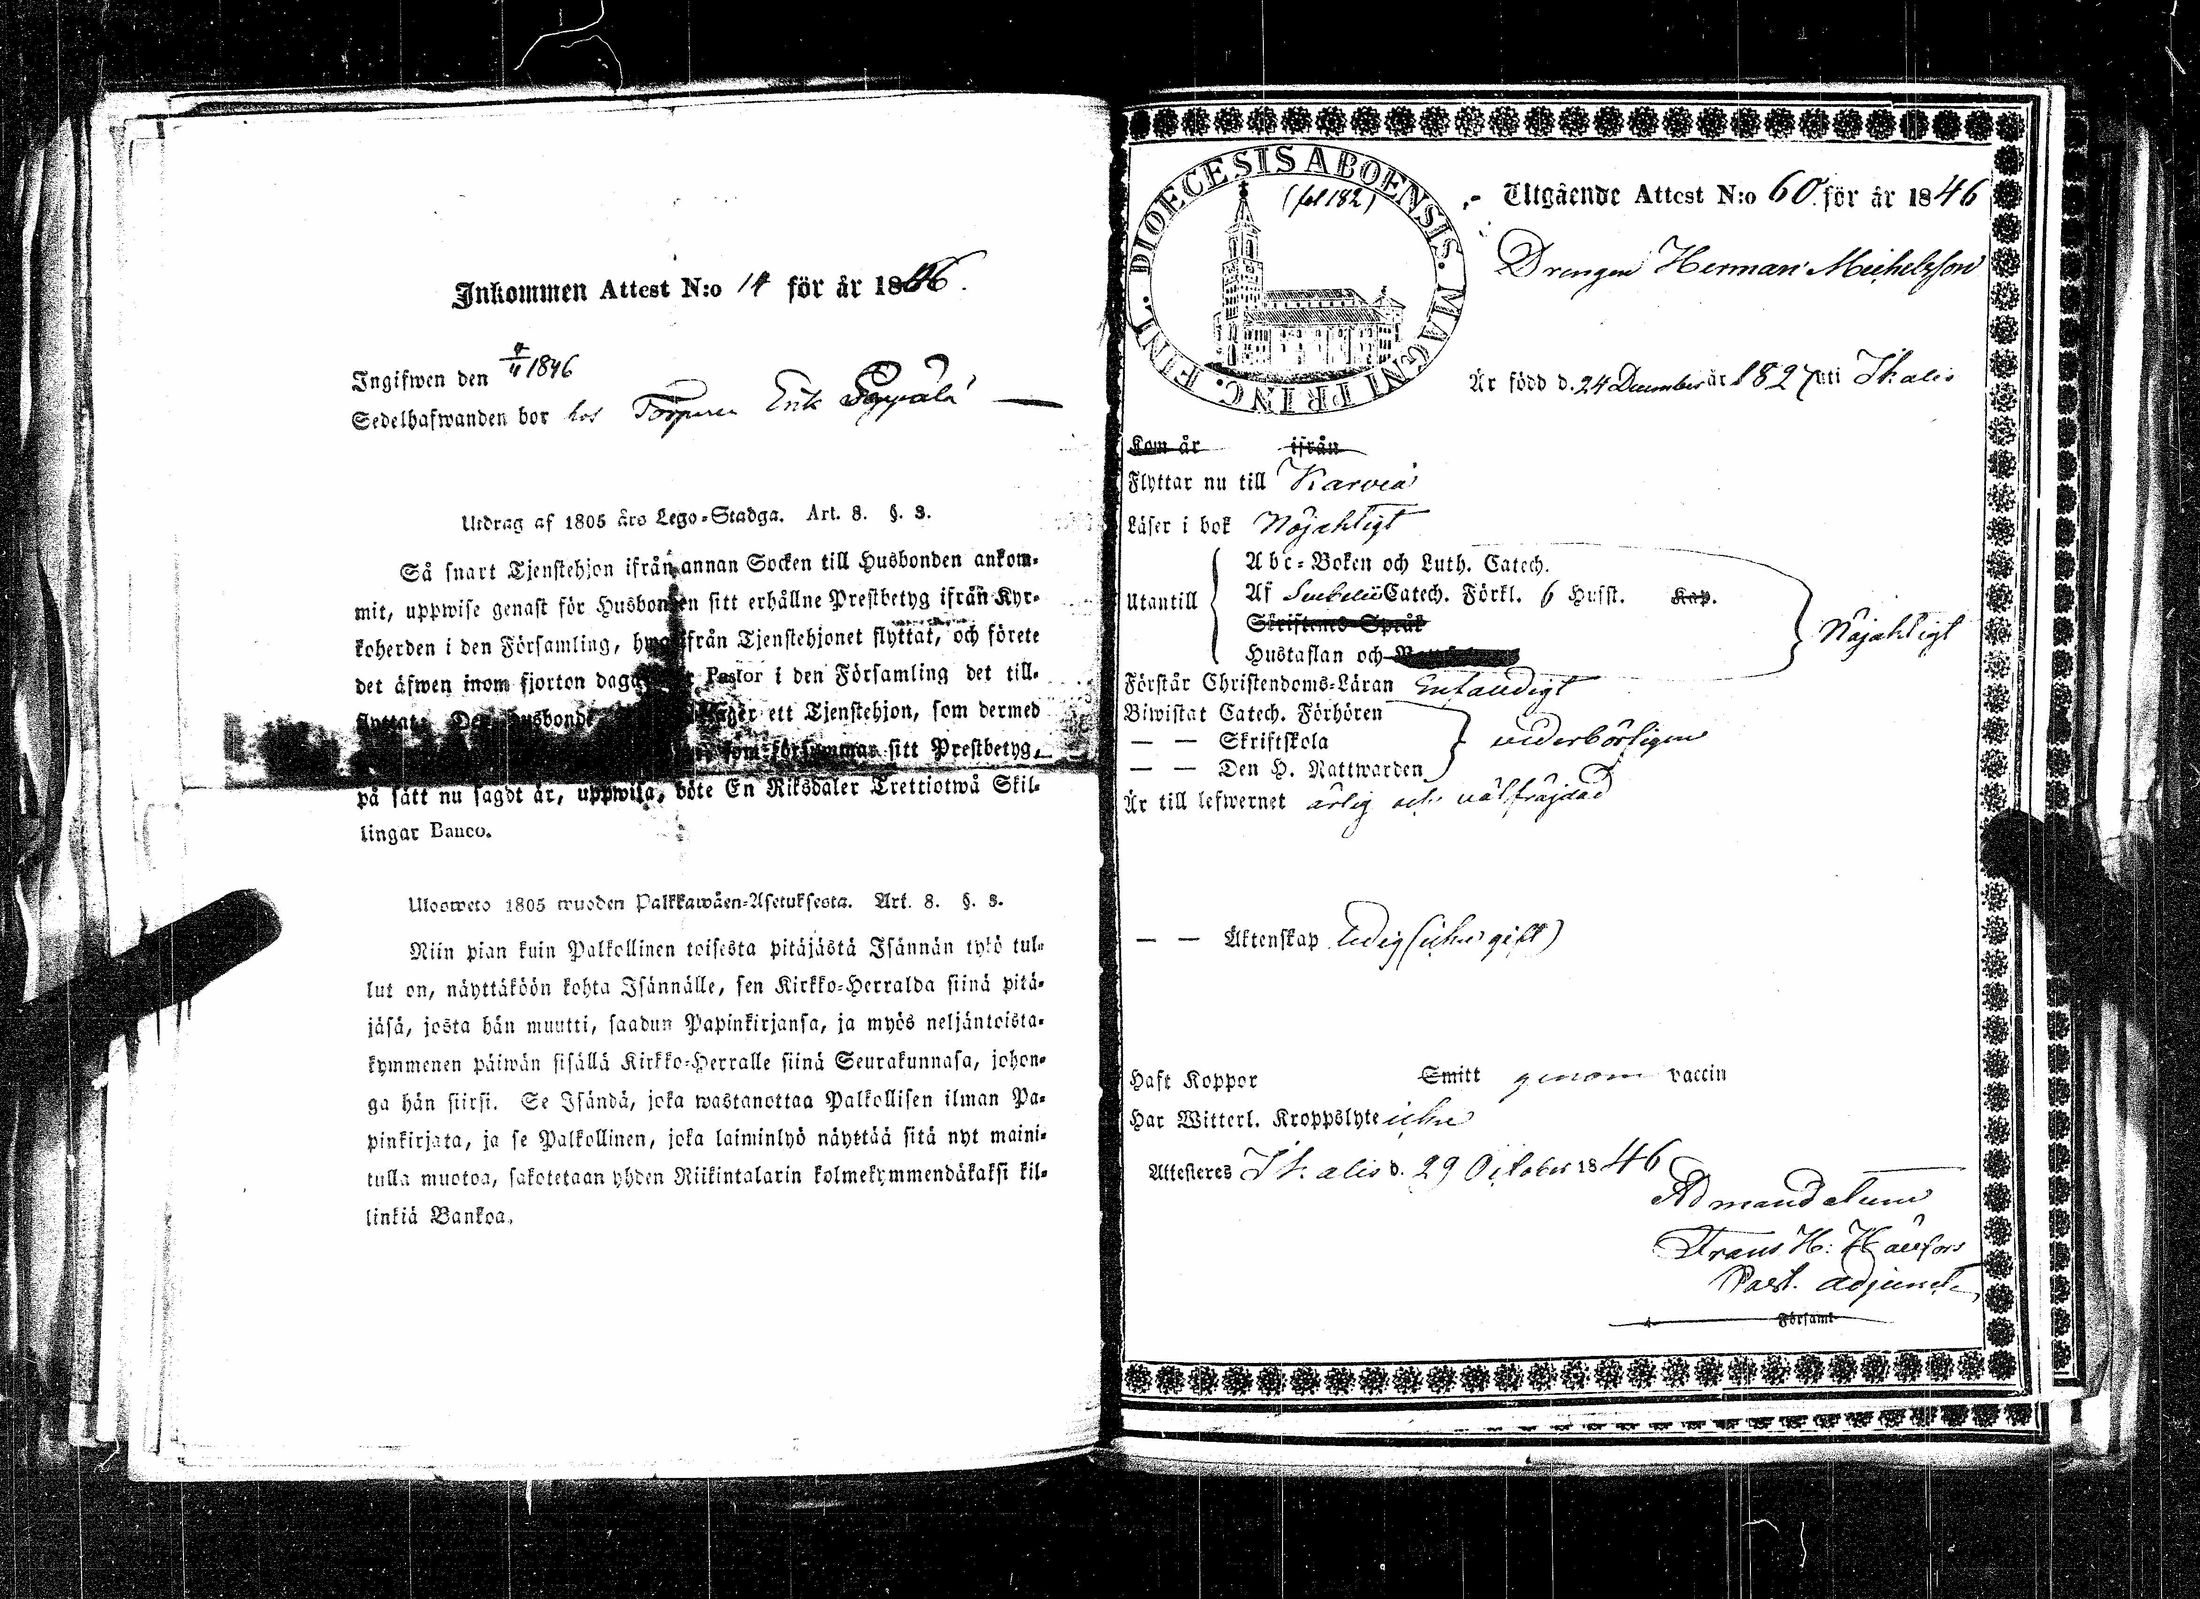 Inkommen Attest N:o 14 för år 1846.
Ingifwen den 9/11 1846
Sedelhafwanden bor hos Torparen Erik
Utdrag af 1805 års Lego-Stadga. Art. 8. §. 3.
Så snart Tjenstehjon ifrån annan Socken till Husbonden ankom-
mit, uppwise genast för Husbonden sitt erhållne Prestbetyg ifrån Kyr-
koherden i den Församling, ifrån Tjenstehjonet flyttat, och förete
det äfwen inom fjorton Pastor i den Församling det till-
ett Tjenstehjon, som dermed
som försummar sitt Prestbetyg,
på sätt nu sagdt är, uppwisa, böte En Riksdaler Trettiotwå Skil-
lingar Banco.
Ulosweto 1805 wuoden Palkkawäen-Asetuksesta. Art. 8. §. 3.
Niin pian kuin Palkollinen toisesta pitäjästä Isännän tykö tul-
lut on, näyttäköön kohta Isännälle, sen Kirkko-Herralda siinä pitä-
jäsä, josta hän muutti, saadun Papinkirjansa, ja myös neljäntoista-
kymmenen päiwän sisällä Kirkko-Herralle siinä Seurakunnasa, johon-
ga hän siirsi. Se Isändä, joka wastanottaa Palkollisen ilman Pa-
pinkirjata, ja se Palkollinen, joka laiminlyö näyttää sitä nyt maini-
tulla muotoa, sakotetaan yhden Riikintalarin kolmekymmendäkaksi kil-
linkiä Bankoa.
DIOECESIS ABOENSIS. MAGNI PRINC. FINL.
(fol 182)
Utgående Attest N:o 60 för år 1846
Drengen Herman Michelsson
Är född d. 24 December år 1827 uti Ikalis
Kom år ifrån
Flyttar nu till Karvia
Läser i bok Nöjaktigt
Utantill
Abc-Boken och Luth. Catech.
Af Svebelii Catech. Förkl. 6 Hufst. Kap.
Skriftens Språk
Hustaflan och
Nöjaktigt
Förstår Christendoms-Läran Enfaldigt
Biwistat Catech. Förhören
— — Skriftskola
— — Den H. Nattwarden
vederbörligen
Är till lefwernet ärlig och välfräjdad
— — Äktenskap ledig (icke gift)
Haft Koppor Smitt genom vaccin
Har Witterl. Kroppslyte icke
Attesteres Ikalis d. 29 October 1846
Ad mandatum
Frans H.
Past. adjunct.
Församl